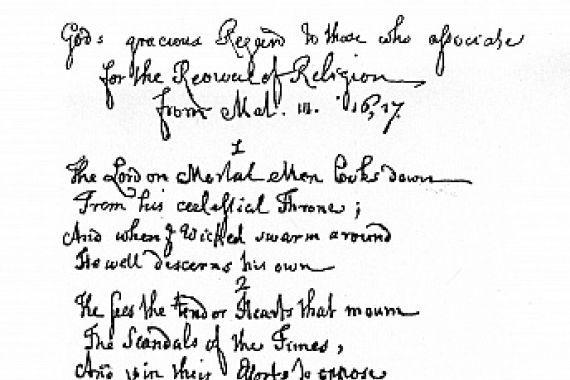 Gods gracious Regard to those who associate
for the Revival of Religion
from Mal. III. 16, 17
1
The Lord on Mortal Men looks down
From his celestial Throne;
And when ye Wicked swarm around
He well discerns his own
2
He sees the tender Hearts that mourn
The Scandals of the Times,
And join their Efforts to oppose